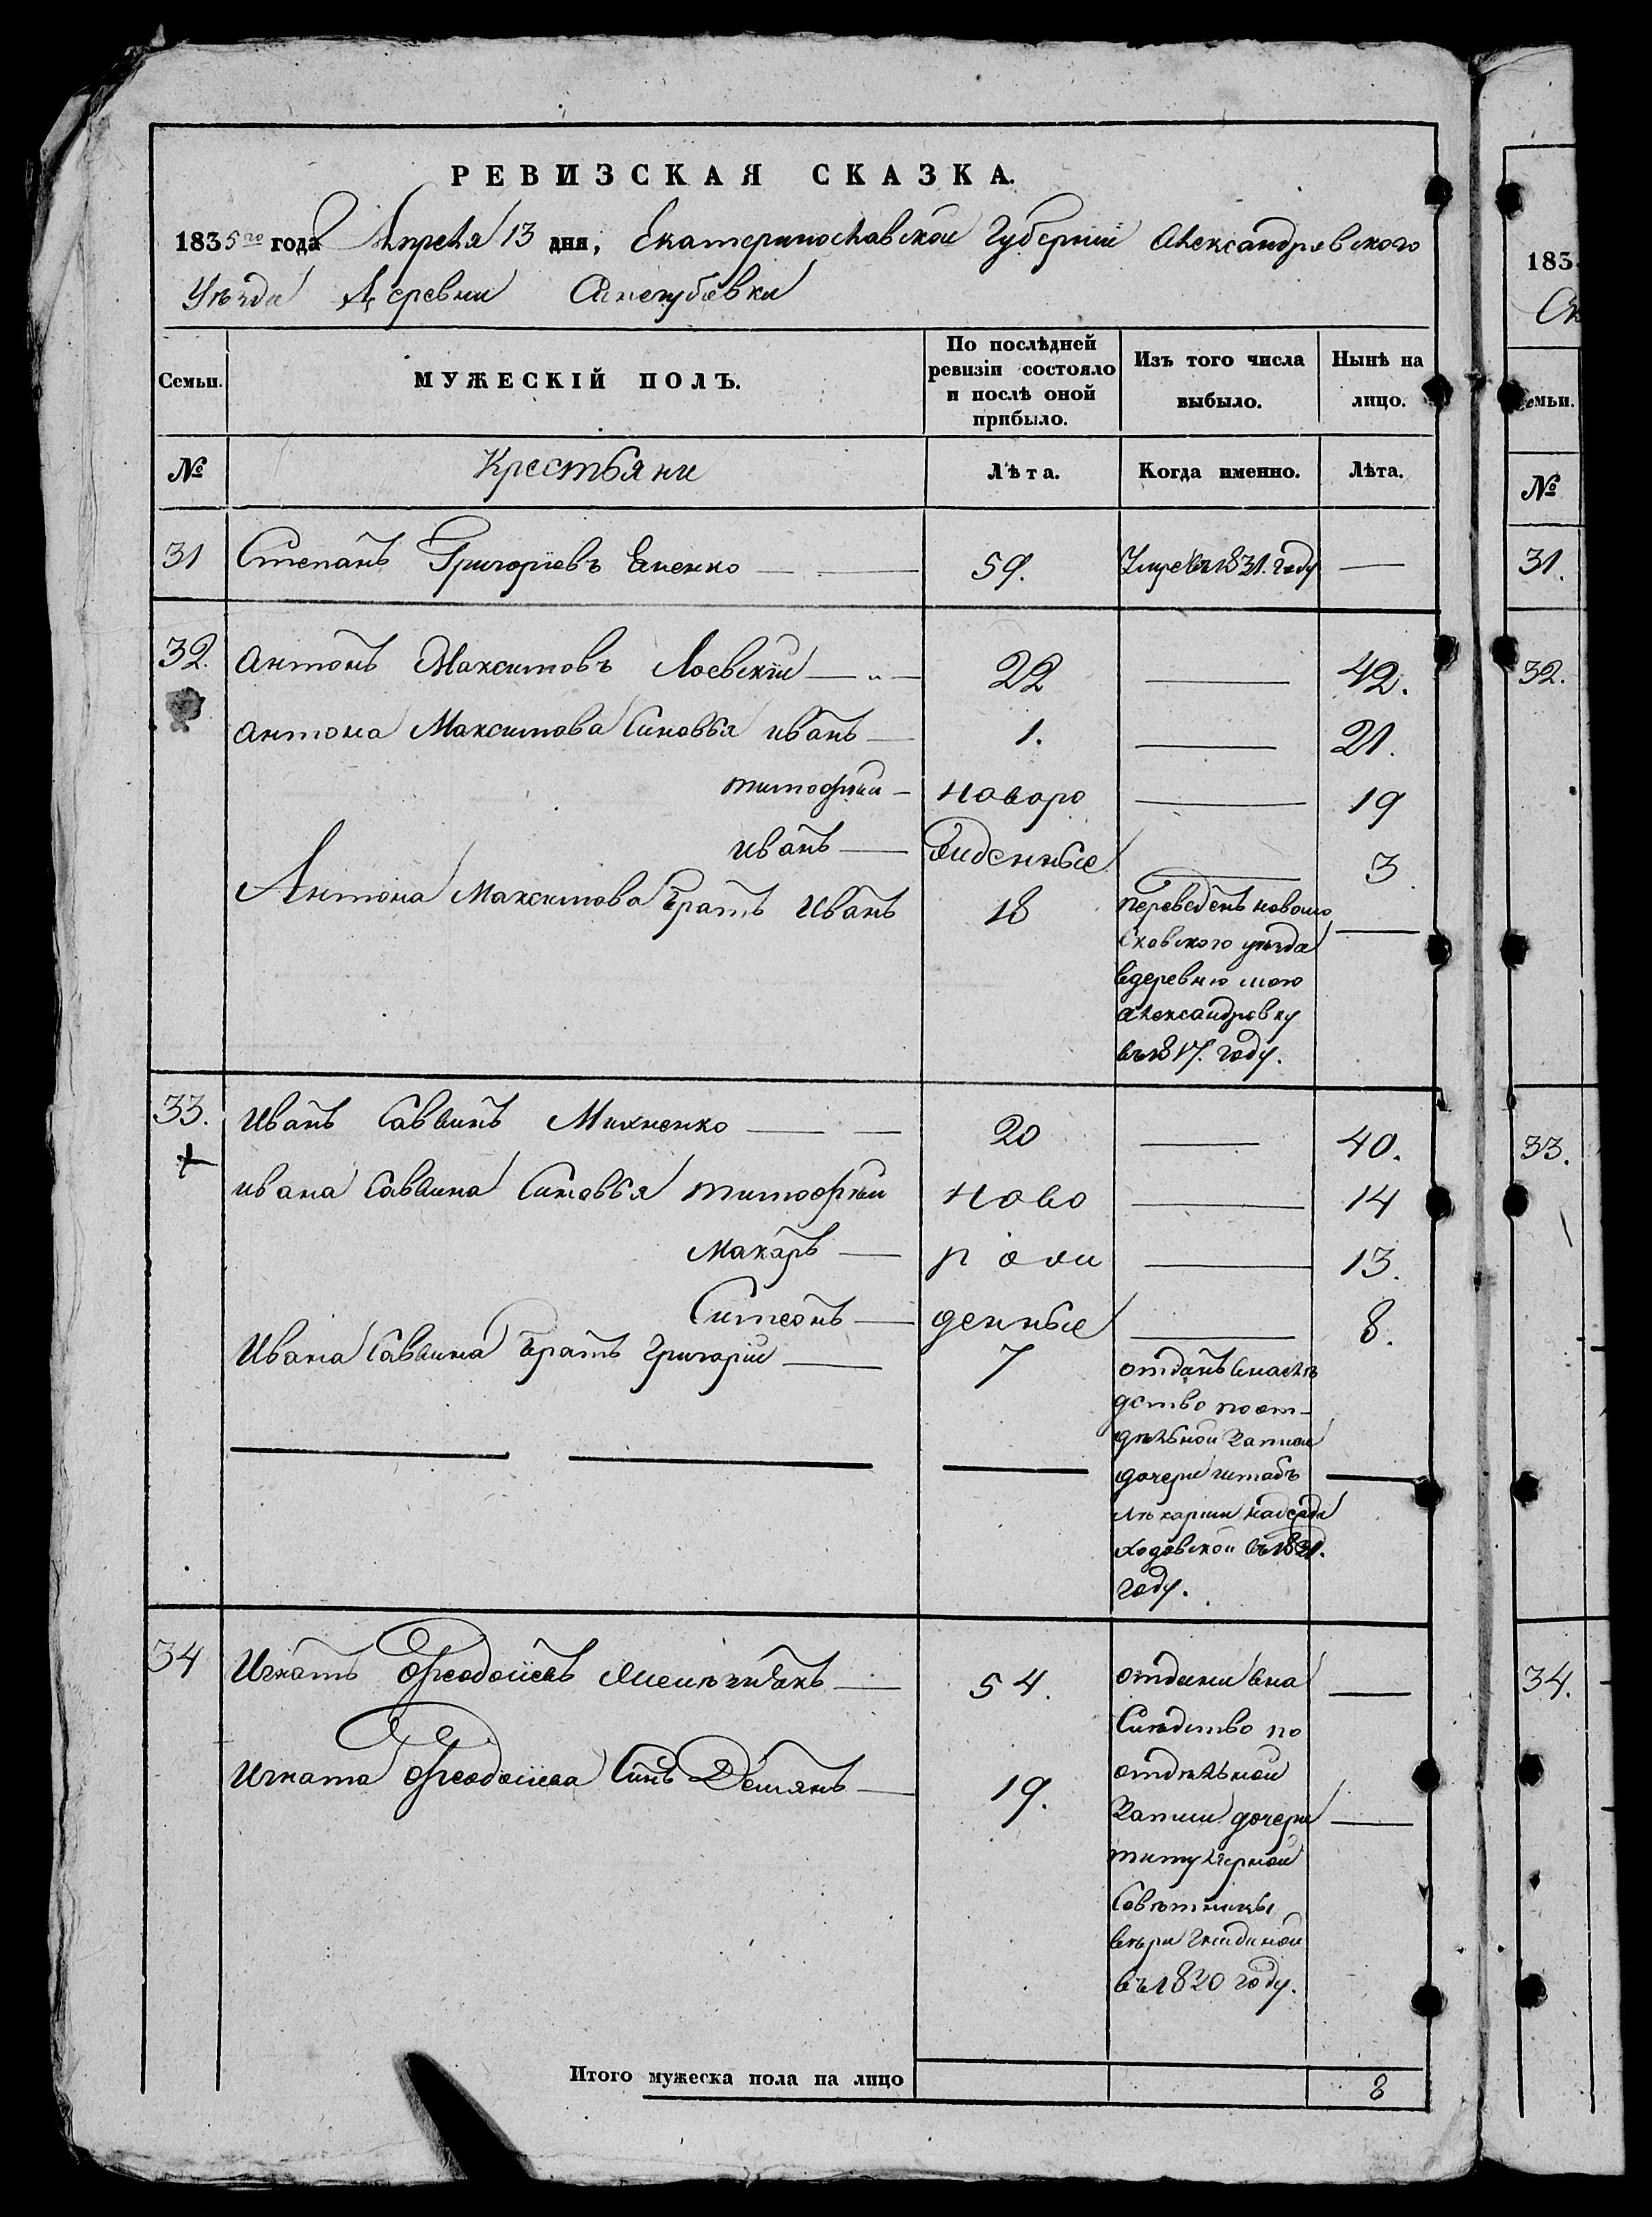 РЕВИЗСКАЯ СКАЗКА.
1835го года Апреля 13 дня, Екатеринославской Губернии Александровского
Уѣзда Деревни
Семьи. МУЖЕСКІЙ ПОЛЪ. По послѣдней ревизіи состояло и послѣ оной прибыло. Изъ того числа выбыло. Нынѣ на лицо.
№ Крестьяни Лѣта. Когда именно. Лѣта.
31 Степанъ Григоріевъ 59. Умре въ 1831. году —
32. Антонъ Максимовъ Лоевскій 22 — 42.
Антона Максимова Синовья иванъ 1. — 21.
тимофѣи новоро — 19
иванъ жденные — 3
Антона Максимова братъ иванъ 18 переведенъ новомо —
сковского уѣзда
вдеревню мою
александровку
въ 1817. году.
33. Иванъ Саввинъ Михненко 20 — 40.
ивана Саввина Синовья тимофѣи ново — 14
макаръ рожи — 13.
Симеонъ денные — 8.
Ивана Саввина братъ Григорій 7 отданъ внаслѣ
дство поот-
дѣльной записи
дочери штабъ —
лѣкарши
въ 1831.
году.
34 Игнатъ Феодосіевъ 54. отдани вна —
слѣдство по
Игната Феодосіева Синъ Демянъ 19. отдѣльной
записи дочери —
титулярной
Совѣтницы
вѣри
въ 1820 году.
Итого мужеска пола на лицо 8
183
емьи.
№
31.
32.
33.
34.